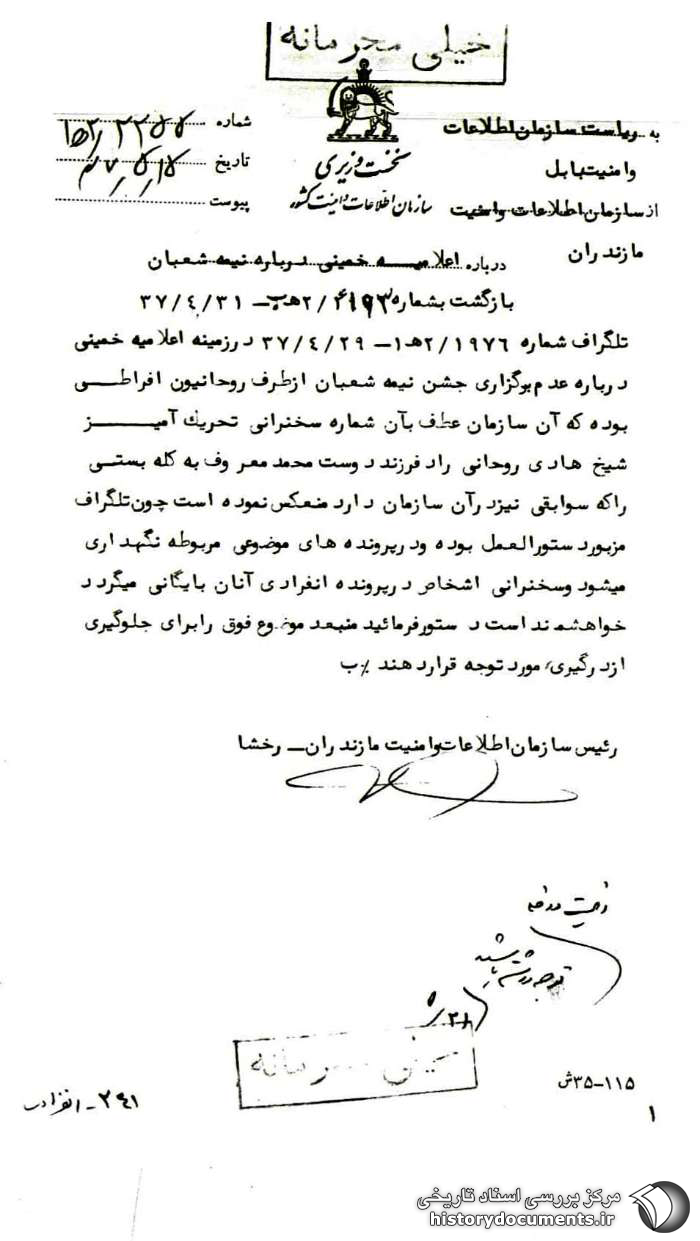 خیلی محرمانه
به ریاست سازمان اطلاعات
وامنیت بابل
از سازمان اطلاعات وامنیت
مازندران
نخست وزیری
سازمان اطلاعات و امنیت کشور
شماره
تاریخ
پیوست
درباره اعلامیه خمینی درباره نیمه شعبان
بازگشت بشماره ۲/ه‍ب ۳۷/٤/۳۱
تلگراف شماره ۲/۱۹۷۶ه‍۱ – ۳۷/٤/۲۹ درزمینه اعلامیه خمینی
درباره عدم برگزاری جشن نیمه شعبان ازطرف روحانیون افراطی
بوده که آن سازمان عطف بآن شماره سخنرانی تحریک آمیز
شیخ هادی روحانی راد فرزند دوست محمد معروف به کله بستی
راکه سوابقی نیزدرآن سازمان دارد منعکس نموده است چون تلگراف
مزبور دستورالعمل بوده ودرپرونده های موضوعی مربوطه نگهداری
میشود وسخنرانی اشخاص درپرونده انفرادی آنان بایگانی میگردد
خواهشمند است دستورفرمائید منبعد موضوع فوق رابرای جلوگیری
ازدرگیری مورد توجه قراردهند ٪ب
رئیس سازمان اطلاعات وامنیت مازندران – رخشا
توجه داشته باشید
خیلی محرمانه
۳۵-۱۱۵ش
۱
۲٤۱ - انفرادی
مرکز بررسی اسناد تاریخی
historydocuments.ir